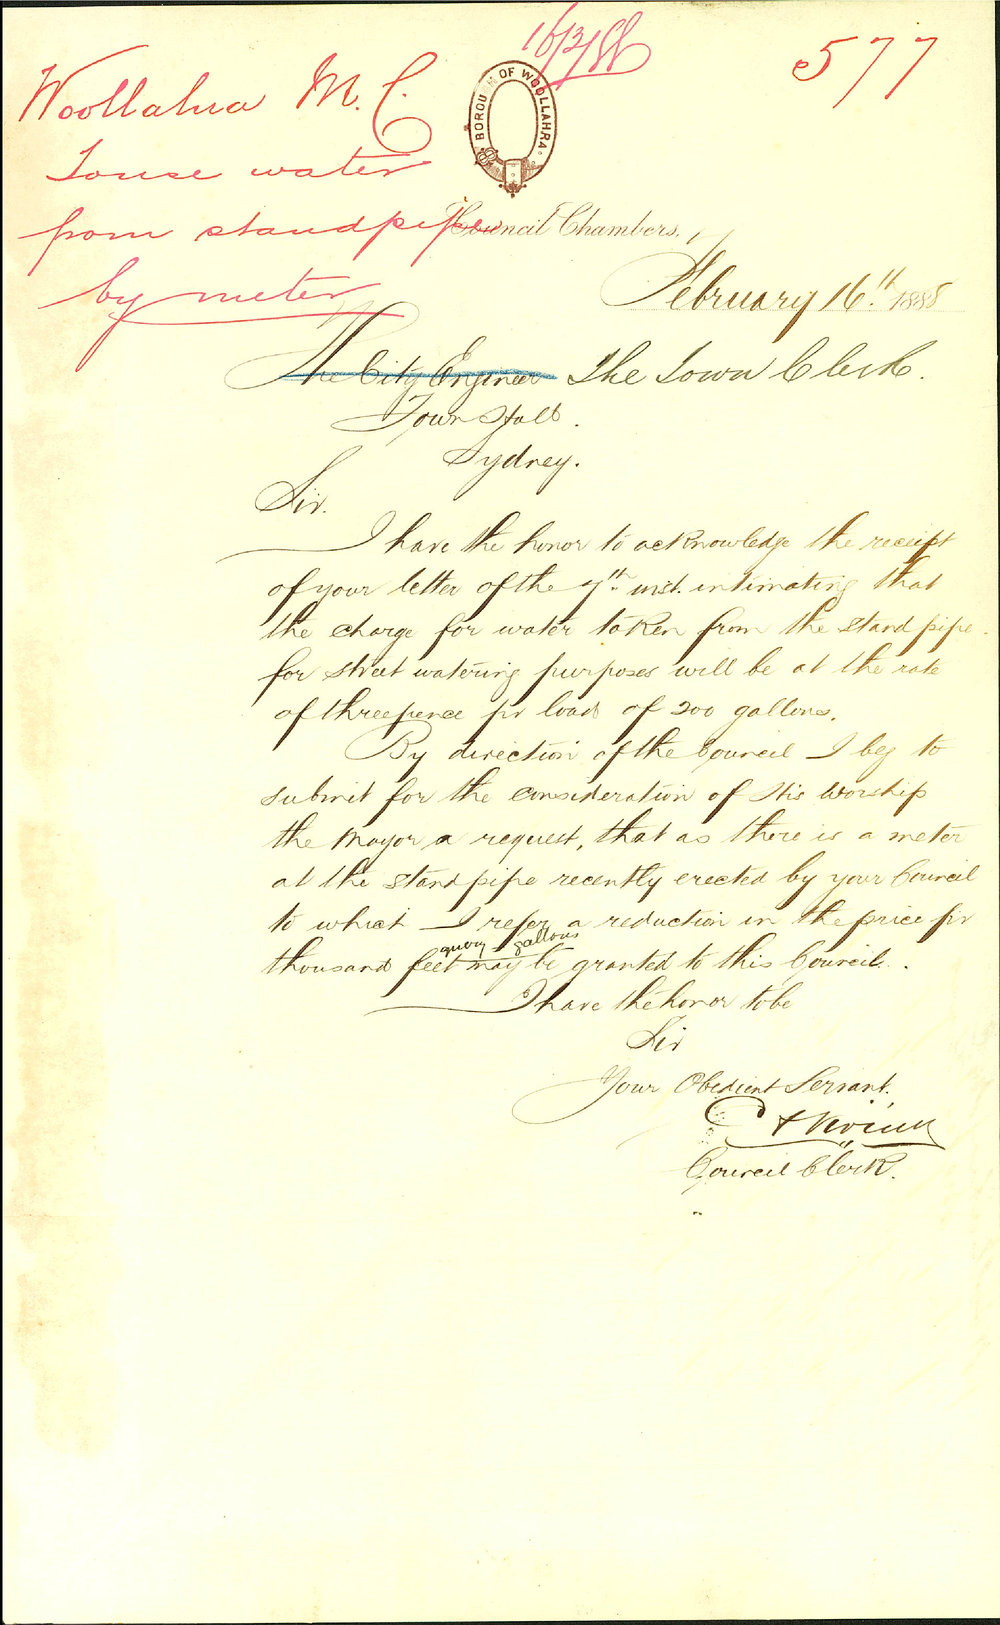 16/2/88
577
Woollahra M. C.
To use water
from standpipe
by meter
BOROUGH OF WOOLLAHRA.
Council Chambers,
February 16th. 1888
The City Engineer The Town Clerk.
Town Hall.
Sydney.
Sir.
I have the honor to acknowledge the receipt
of your letter of the 7th. inst. intimating that
the charge for water taken from the stand pipe
for street watering purposes will be at the rate
of threepence pr load of 200 gallons.
By direction of the Council I beg to
submit for the consideration of His Worship
the Mayor a request, that as there is a meter
at the stand pipe recently erected by your Council
to which I refer a reduction in the price pr
query gallons
thousand feet may be granted to this Council.
I have the honor to be
Sir
Your Obedient Servant,
Council Clerk.